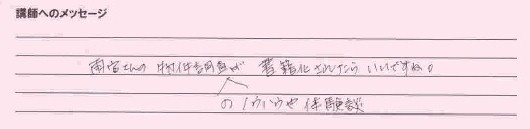 講師へのメッセージ
南宮さんの物件調査が書籍化されたらいいですね。
のノウハウや体験談